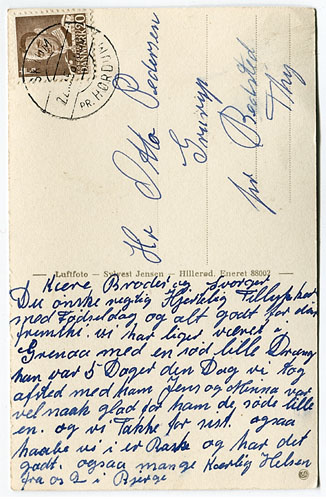 20
DANMARK
PR. HORD
Hr Otto Pedersen
Grurup
pr Bedsted
Thy
Luftfoto – Sylvest Jensen – Hillerød. Eneret 88002
Kære Broder og Svoger
Du ønske rigtig Hjertelig Tillykke
med Fødselsdag og alt godt for din
fremtid. vi har liger været i
Grenaa med en sød lille Dreng
han var 5 Dage den Dag vi tog
afsted med ham Jens og Anna var
vel nok glad for ham de søde lille
en. og vi Takke for sist. ogsaa
haabe vi i er Raske og har det
godt. ogsaa mange Kærlig Helsen
fra os 2 i Bjerge